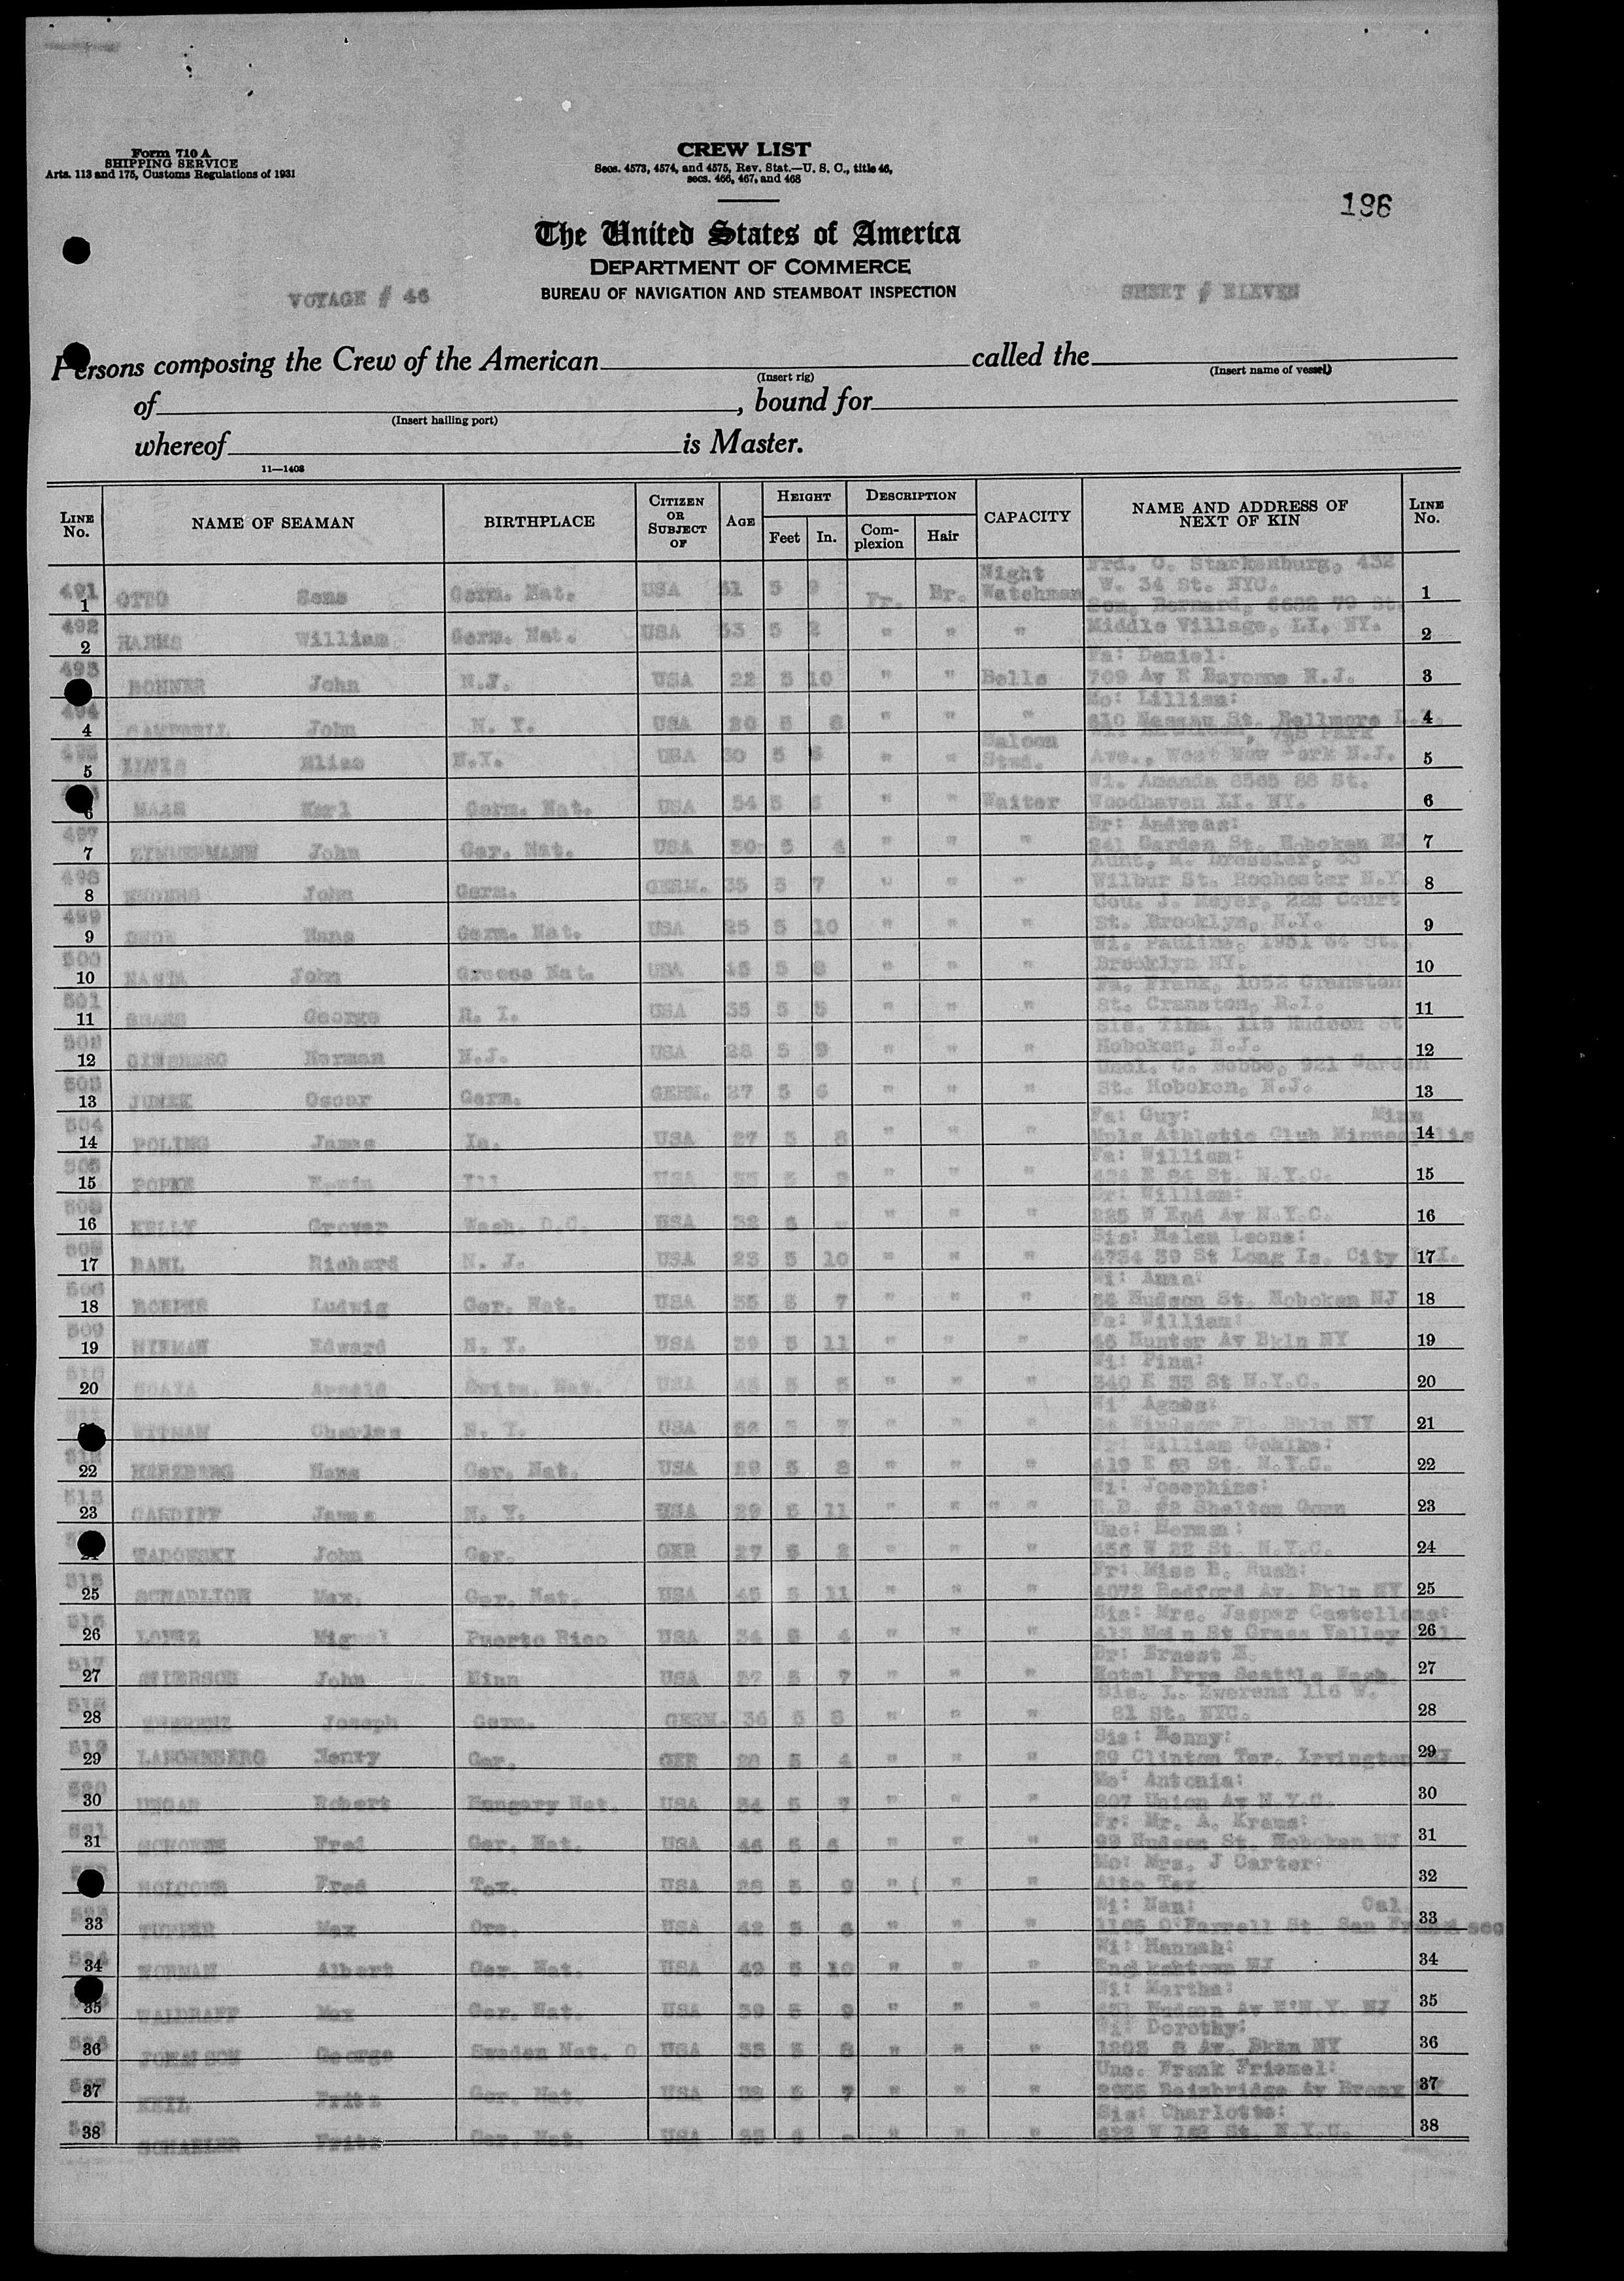 Form 710 A
SHIPPING SERVICE
Arts. 113 and 175, Customs Regulations of 1931
CREW LIST
Secs. 4573, 4574, and 4575, Rev. Stat.—U. S. C., title 46,
secs. 466, 467, and 468
196
The United States of America
DEPARTMENT OF COMMERCE
BUREAU OF NAVIGATION AND STEAMBOAT INSPECTION
VOYAGE # 46
SHEET # ELEVEN
Persons composing the Crew of the American called the
(Insert rig) (Insert name of vessel)
of , bound for
(Insert hailing port)
whereof is Master.
11—1408
LINE No. NAME OF SEAMAN BIRTHPLACE CITIZEN OR SUBJECT OF AGE HEIGHT Feet In. DESCRIPTION Complexion Hair CAPACITY NAME AND ADDRESS OF NEXT OF KIN LINE No.
Frd. C. Starkenburg, 432
491 1 OTTO Germ. Nat. USA 51 5 9 Fr. Br. Night Watchman W. 34 St. NYC. 1
Son, Bernard, 6632 79 St.
492 2 HARMS William Germ. Nat. USA 53 5 2 " " " Middle Village, LI. NY. 2
Fa: Daniel:
493 BONNER John N.J. USA 22 5 10 " " Bells 709 Av E Bayonne N.J. 3
Mo: Lillian:
494 4 CAMPBELL John N. Y. USA 20 5 8 " " " 610 Nassau St. Bellmore L.I. 4
495 5 Elias N.Y. USA 30 5 6 " " Saloon Stwd. Ave., West New York N.J. 5
Wi. Amanda 8565 88 St.
6 MAAS Karl Germ. Nat. USA 54 5 5 " " Waiter Woodhaven LI. NY. 6
Br: Andreas:
497 7 ZIMMERMANN John Ger. Nat. USA 30 5 4 " " " 241 Garden St. Hoboken NJ 7
Aunt, M. Dressler, 65
498 8 John Germ. GERM. 35 5 7 " " " Wilbur St. Rochester N.Y. 8
Cou. J. Meyer, 228 Court
499 9 Hans Germ. Nat. USA 25 5 10 " " " St. Brooklyn, N.Y. 9
Wi. Pauline, 1951 64 St.,
500 10 John Greece Nat. USA 45 5 8 " " " Brooklyn NY. 10
Fa. Frank, 1052 Cranston
501 11 George R. I. USA 35 5 5 " " " St. Cranston, R.I. 11
Sis. Tina, 115 Hudson St
502 12 GINSBERG Herman N.J. USA 28 5 9 " " " Hoboken, N.J. 12
Uncl. C. Bobbe, 921 Garden
503 13 JUNEK Oscar Germ. GERM. 27 5 6 " " " St. Hoboken, N.J. 13
Fa: Guy: Minn
504 14 POLING James Ia. USA 27 5 8 " " " Mpls Athletic Club Minneapolis 14
Fa: William:
505 15 POPKE Erwin Ill USA 5 " " " E 84 St. N.Y.C. 15
Br: William:
506 16 KELLY Grover Wash. D.C. USA 32 6 - " " " 225 W End Av N.Y.C. 16
Sis: Helen Leone:
507 17 BAHL Richard N. J. USA 23 5 10 " " " 4734 39 St Long Is. City L.I. 17
Wi: Anna:
508 18 ROEPER Ludwig Ger. Nat. USA 35 5 7 " " " Hudson St. Hoboken NJ 18
Fa: William:
509 19 Edward N. Y. USA 39 5 11 " " " 46 Hunter Av Bkln NY 19
Wi: Pina:
510 20 Arnold Switz. Nat. USA 5 5 " " " 340 E 33 St N.Y.C. 20
Wi Agnes:
WITMAN Charles N. Y. USA 5 7 " " " Windsor Pl. Bkln NY 21
William Gehlke:
512 22 HERZBERG Hans Ger. Nat. USA 29 5 8 " " " 419 E 83 St. N.Y.C. 22
Wi: Josephine:
513 23 CARDIFF James N. Y. USA 29 5 11 " " " " R.D. #2 Shelton Conn 23
Unc: Herman:
TADOWSKI John Ger. GER 27 5 2 " " " 456 W 22 St. N.Y.C. 24
Fr: Miss B. Rush:
515 25 SCHADLICH Max. Ger. Nat. USA 45 5 11 " " " 4072 Bedford Av. Bkln NY 25
Sis: Mrs. Jasper Castellons:
516 26 LOPEZ Miguel Puerto Rico USA 34 5 4 " " " 413 Main St Grass Valley Cal. 26
Br: Ernest E.
517 27 John Minn USA 37 5 7 " " " Hotel Frye Seattle Wash. 27
Sis. L. Zwerenz 116 W.
518 28 ZWERENZ Joseph Germ. GERM. 36 5 8 " " " 81 St. NYC. 28
Sis: Henny:
519 29 LANGENBERG Henry Ger. GER 28 5 4 " " " 29 Clinton Ter. Irvington NJ 29
Mo: Antonia:
520 30 UNGAR Robert Hungary Nat. USA 34 5 7 " " " 807 Union Av N.Y.C. 30
Fr: Mr. A. Kraus:
521 31 Fred Ger. Nat. USA 46 5 6 " " " 99 Hudson St. Hoboken NJ 31
Mo: Mrs. J Carter:
HOLCOMB Fred Tex. USA 28 5 9 " " " Alto Tex 32
Wi: Nan: Cal.
33 TUPPER Max Ore. USA 42 5 6 " " " 1105 O'Farrell St. San Francisco 33
Wi: Hannah:
524 34 Albert Ger. Nat. USA 49 5 10 " " " Englishtown NJ 34
Wi: Martha:
35 WALDRAFF Max Ger. Nat. USA 39 5 9 " " " Hudson Av W'N.Y. NJ 35
Wi: Dorothy:
526 36 JOHALSON George Sweden Nat. USA 35 5 8 " " " 8 Av. Bkln NY 36
Unc. Frank Friemel:
527 37 KEIL Fritz Ger. Nat. USA 38 5 7 " " " 2955 Bainbridge Av Bronx NY 37
Sis: Charlotte:
528 38 SCHAEFER Fritz Ger. Nat. USA 35 6 - " " " W St. N.Y.C. 38